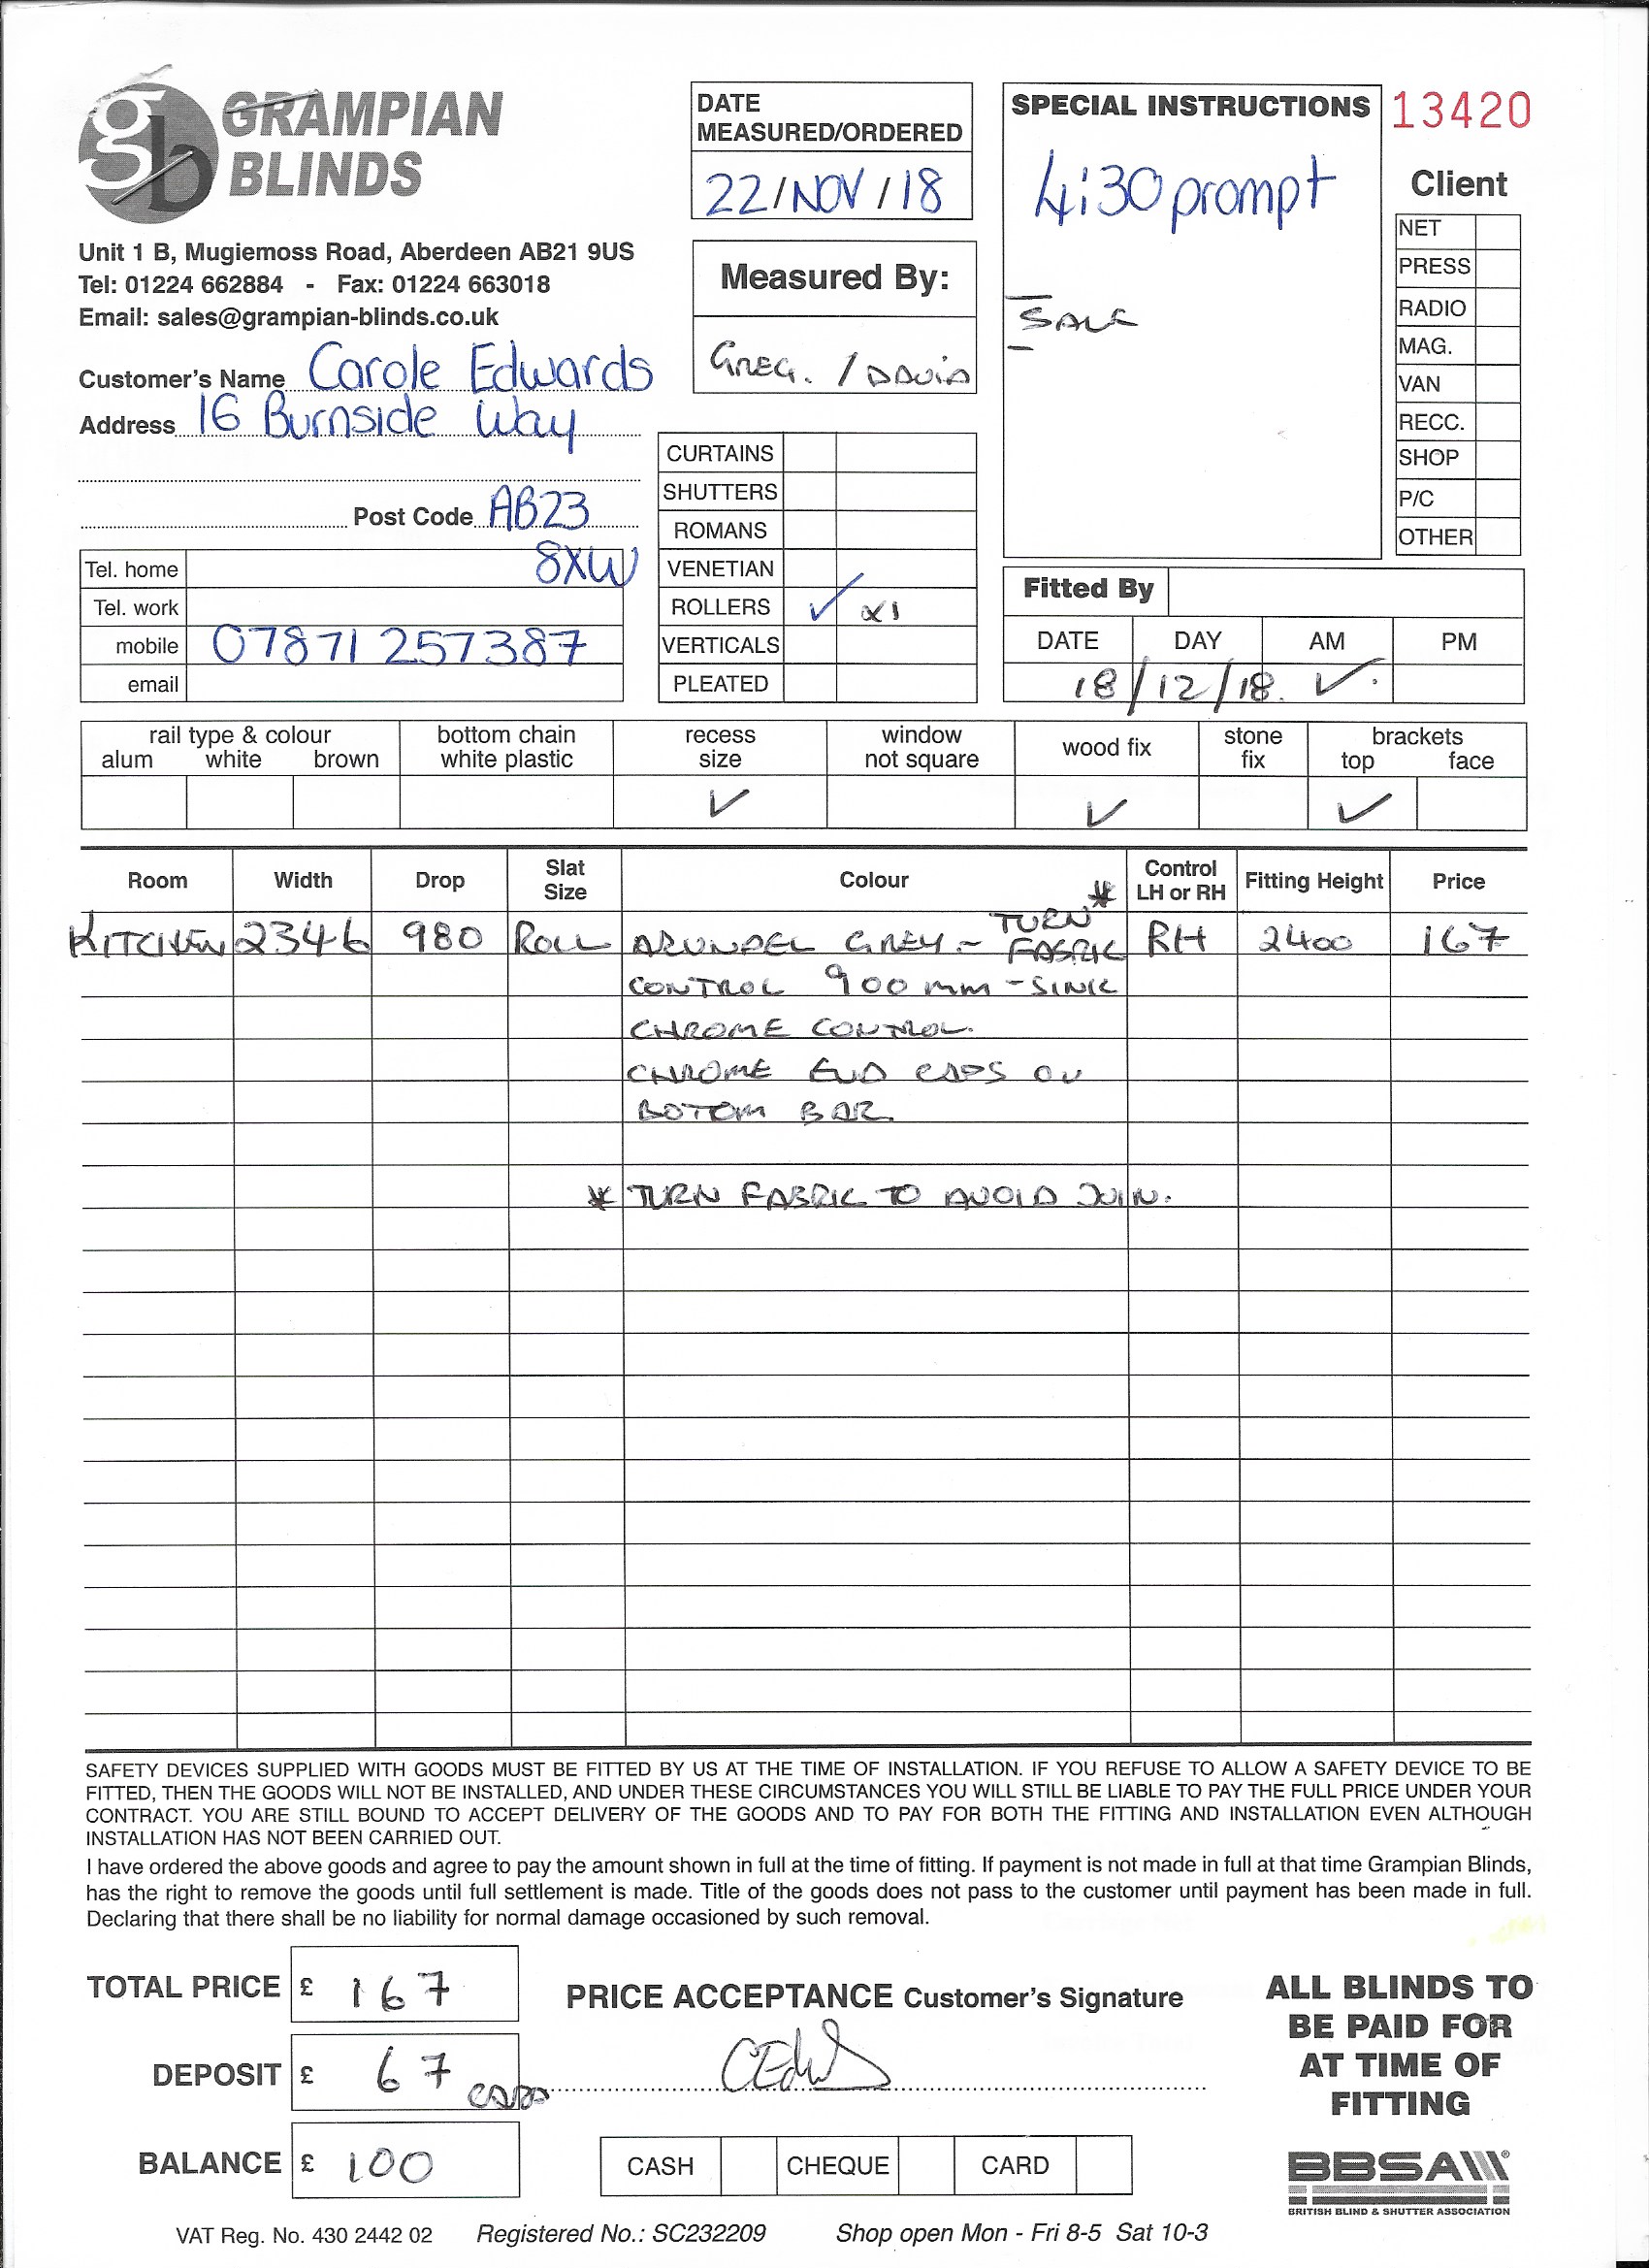 GRAMPIAN
BLINDS
Unit 1 B, Mugiemoss Road, Aberdeen AB21 9US
Tel: 01224 662884 - Fax: 01224 663018
Email: sales@grampian-blinds.co.uk
Customer's Name Carole Edwards
Address 16 Burnside Way
Post Code AB23
8XW
Tel. home
Tel. work
mobile 07871 257387
email
DATE
MEASURED/ORDERED
22/NOV/18
Measured By:
GREG. / DAVID
CURTAINS
SHUTTERS
ROMANS
VENETIAN
ROLLERS ✓ x1
VERTICALS
PLEATED
SPECIAL INSTRUCTIONS
4:30 prompt
SALE
13420
Client
NET
PRESS
RADIO
MAG.
VAN
RECC.
SHOP
P/C
OTHER
Fitted By
DATE DAY AM PM
18/12/18. ✓.
rail type & colour
alum white brown
bottom chain
white plastic
recess
size
✓
window
not square
wood fix
✓
stone
fix
brackets
top face
✓
Room Width Drop Slat Size Colour Control LH or RH Fitting Height Price
KITCHEN 2346 980 ROLL ARUNDEL GREY - TURN FABRIC * RH 2400 167
CONTROL 900mm - SINK
CHROME CONTROL.
CHROME END CAPS ON
BOTOM BAR.
* TURN FABRIC TO AVOID JOIN.
SAFETY DEVICES SUPPLIED WITH GOODS MUST BE FITTED BY US AT THE TIME OF INSTALLATION. IF YOU REFUSE TO ALLOW A SAFETY DEVICE TO BE
FITTED, THEN THE GOODS WILL NOT BE INSTALLED, AND UNDER THESE CIRCUMSTANCES YOU WILL STILL BE LIABLE TO PAY THE FULL PRICE UNDER YOUR
CONTRACT. YOU ARE STILL BOUND TO ACCEPT DELIVERY OF THE GOODS AND TO PAY FOR BOTH THE FITTING AND INSTALLATION EVEN ALTHOUGH
INSTALLATION HAS NOT BEEN CARRIED OUT.
I have ordered the above goods and agree to pay the amount shown in full at the time of fitting. If payment is not made in full at that time Grampian Blinds,
has the right to remove the goods until full settlement is made. Title of the goods does not pass to the customer until payment has been made in full.
Declaring that there shall be no liability for normal damage occasioned by such removal.
TOTAL PRICE £ 167
DEPOSIT £ 67 CARD
BALANCE £ 100
PRICE ACCEPTANCE Customer's Signature
CEdw
CASH CHEQUE CARD
ALL BLINDS TO
BE PAID FOR
AT TIME OF
FITTING
BBSA
BRITISH BLIND & SHUTTER ASSOCIATION
VAT Reg. No. 430 2442 02 Registered No.: SC232209 Shop open Mon - Fri 8-5 Sat 10-3